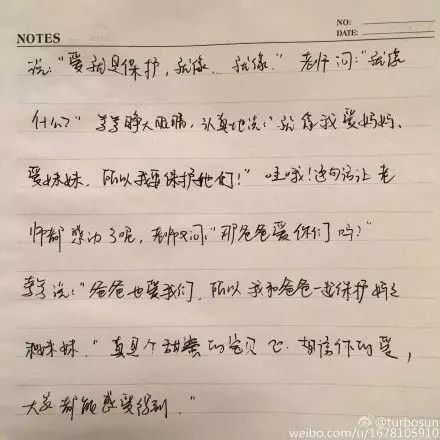 NO:
DATE:
NOTES
说:"爱就是保护,就像…就像."老师问:"就像
什么?"等等睁大眼睛,认真地说:"就像我爱妈妈、
爱妹妹,所以我要保护她们!"哇哦!这句话让老
师都感动了呢,老师又问:"那爸爸爱你们吗?"
等等说:"爸爸也爱我们,所以我和爸爸一起保护妈妈
和妹妹."真是个甜蜜的宝贝 相信你的爱,
大家都能感受得到."
@turbosun
weibo.com/u/1678105910